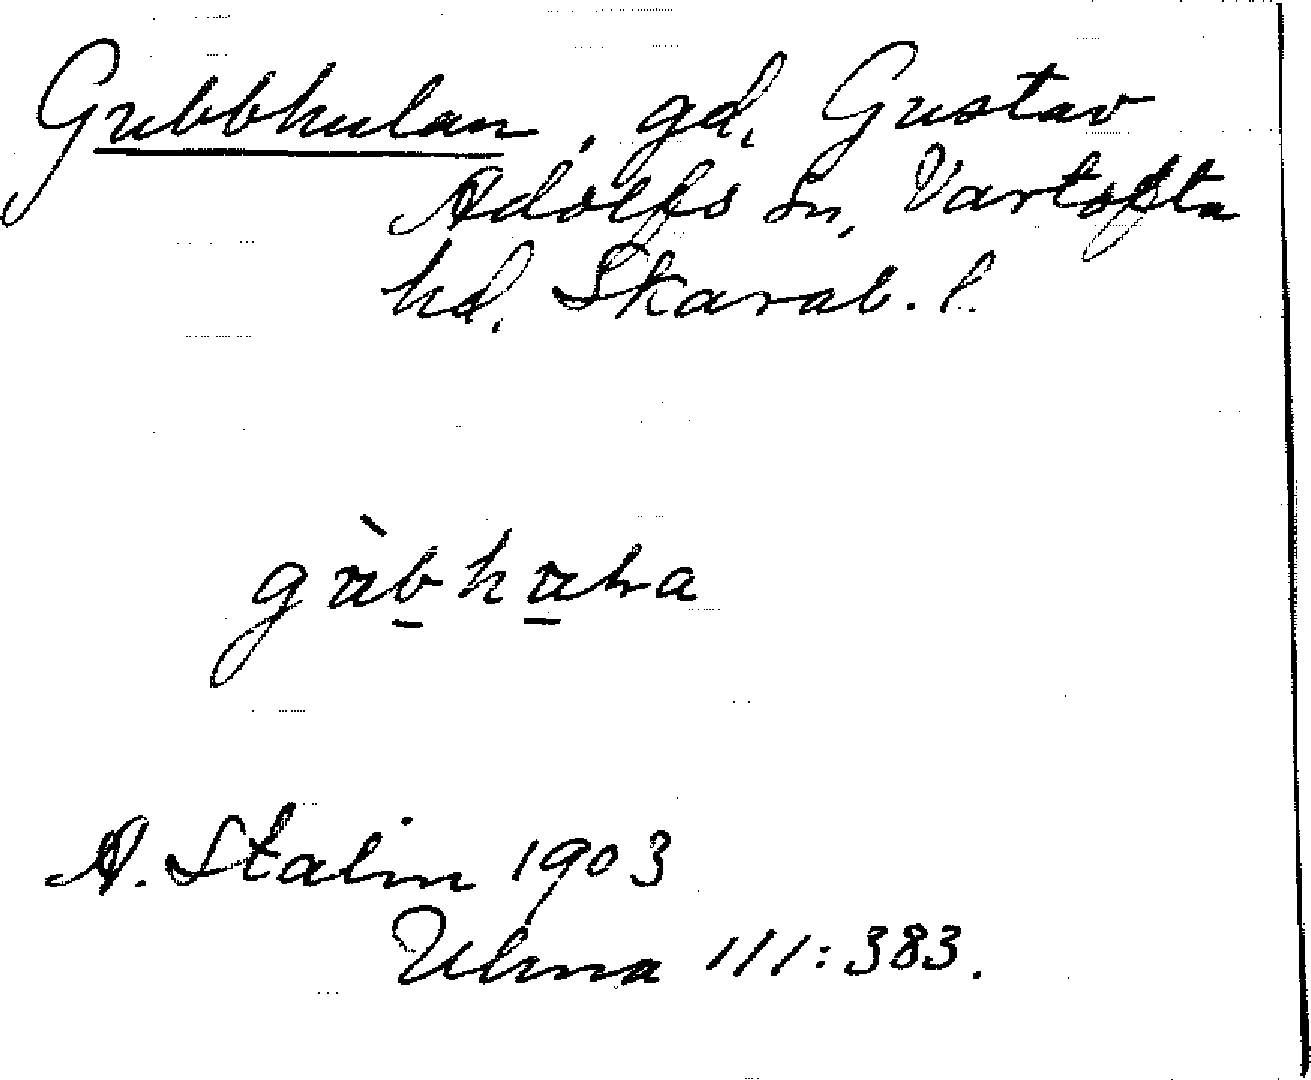 Grubbhulan, gd, Gustav
Adolfs sn, Vartofta
hd, Skarab. l.
A. Stalin 1903
Ulma 111:383.